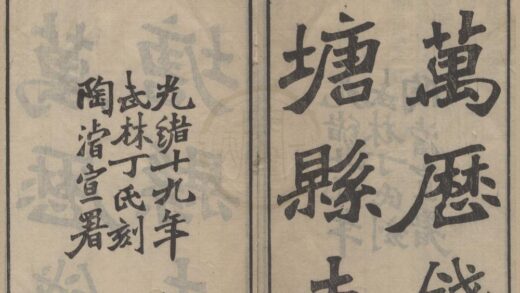 萬歷錢
塘縣
光緒十九年
武林丁氏刻
陶濬宣署